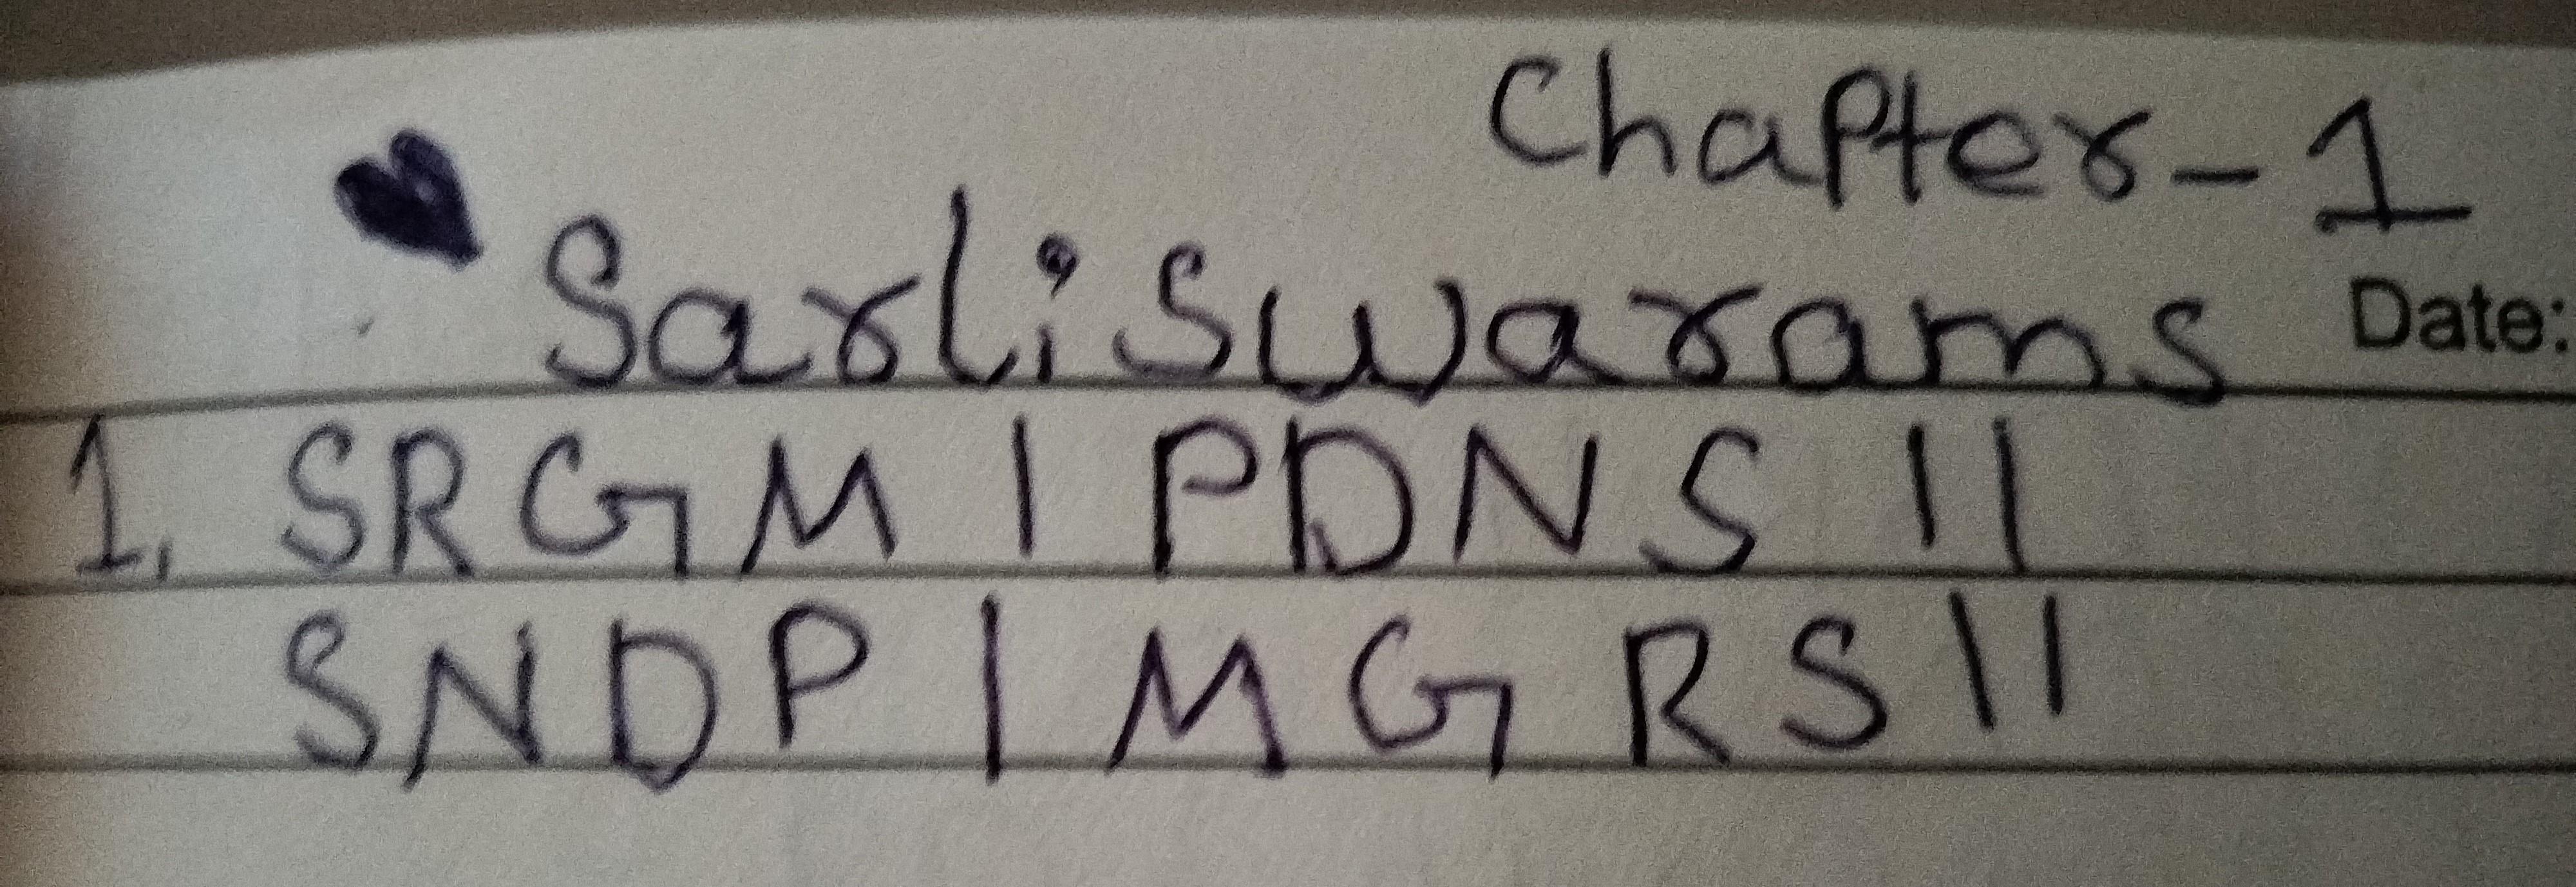 Chapter-1
Sarli Swarams
Date:
1. SRGM | PDNS ||
SNDP | MGRS ||